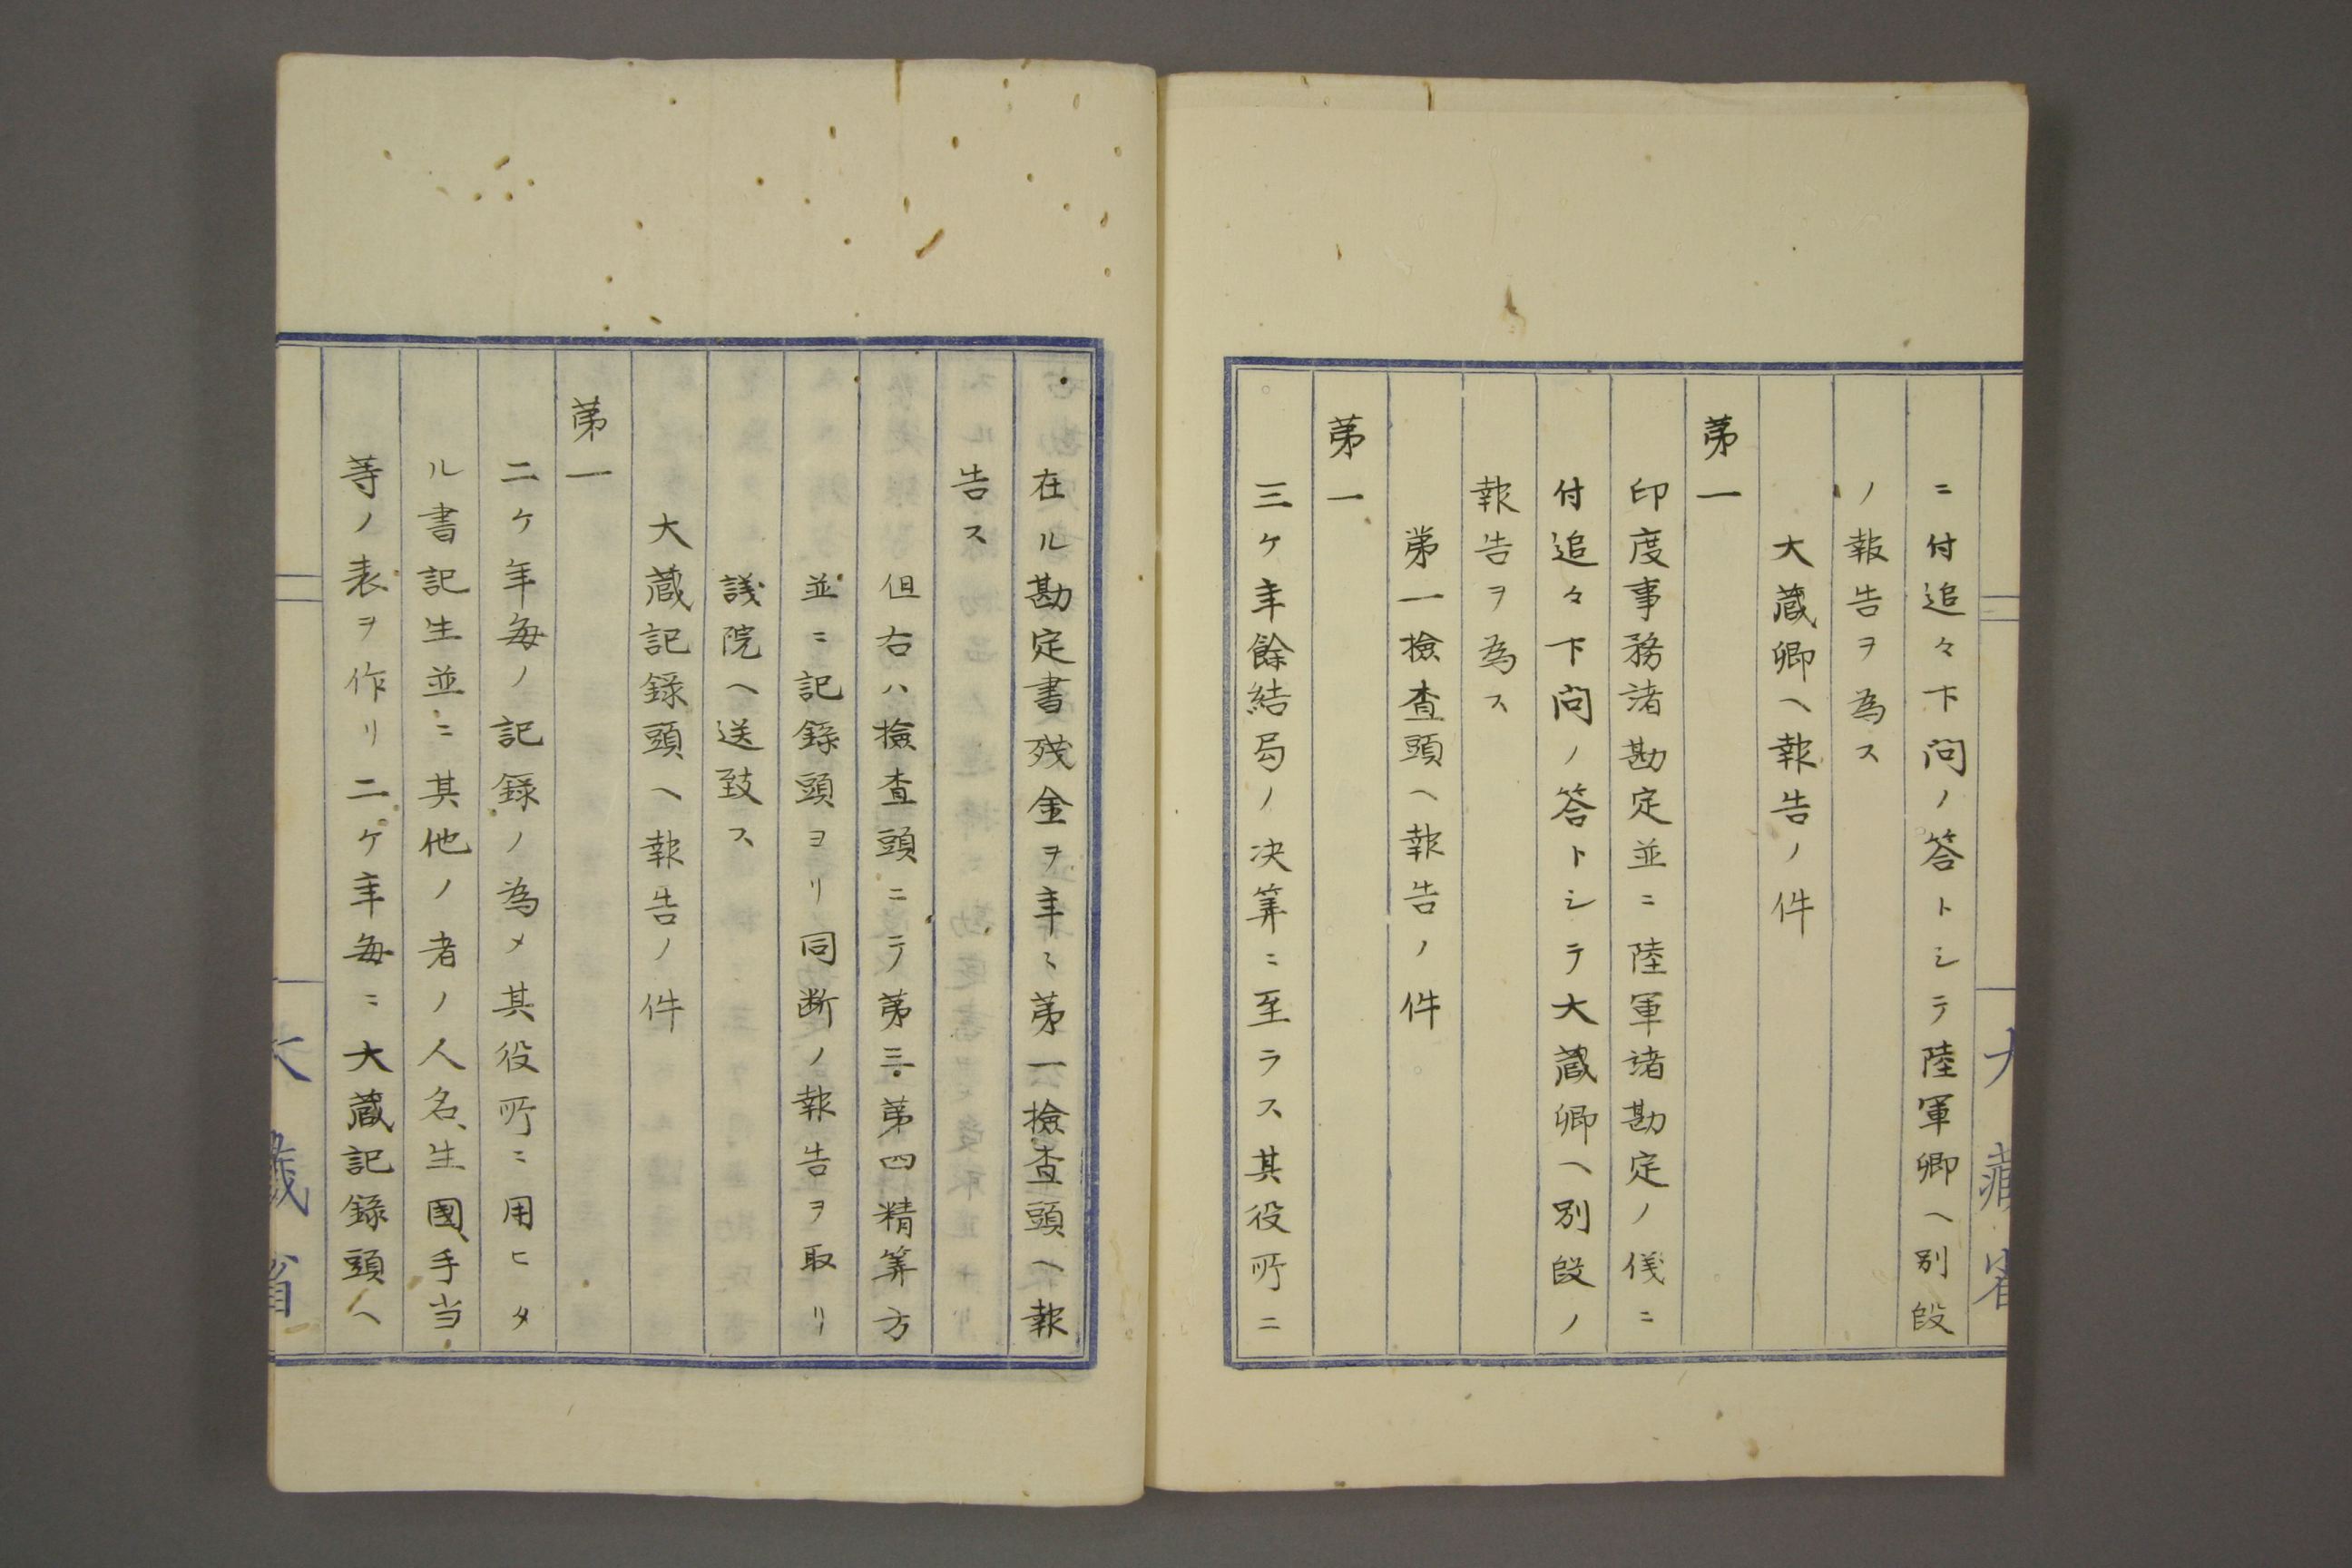 ニ付追々下問ノ答トシテ陸軍卿ヘ別段
ノ報告ヲ為ス
大蔵卿ヘ報告ノ件
第一
印度事務諸勘定並ニ陸軍諸勘定ノ儀ニ
付追々下問ノ答トシテ大蔵卿ヘ別段ノ
報告ヲ為ス
第一撿査頭ヘ報告ノ件
第一
三ケ年餘結局ノ决筭ニ至ラス其役所ニ
在ル勘定書残金ヲ年〻第一撿査頭ヘ報
告ス
但右ハ撿査頭ニテ第三第四精筭方
並ニ記録頭ヨリ同断ノ報告ヲ取リ
議院ヘ送致ス
大蔵記録頭ヘ報告ノ件
第一
二ケ年毎ノ記録ノ為メ其役所ニ用ヒタ
ル書記生並ニ其他ノ者ノ人名生國手当
等ノ表ヲ作リ二ケ年毎ニ大蔵記録頭ヘ
大藏省
大藏省